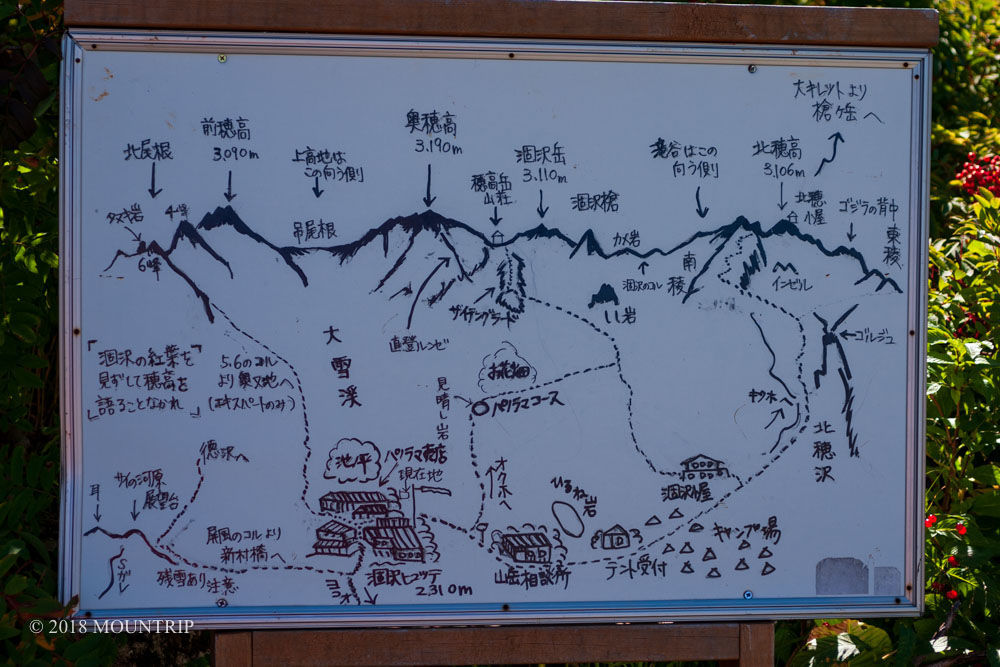 大キレットより
槍ヶ岳へ
北尾根
前穂高
3,090m
上高地は
この向う側
奥穂高
3,190m
穂高岳
山荘
涸沢岳
3,110m
涸沢槍
滝谷はこの
向う側
北穂高
3,106m
北穂
小屋
ゴジラの背中
東稜
タヌキ岩
4峰
6峰
吊尾根
カメ岩
涸沢のコル
南稜
インゼル
ザイテングラート
直登ルンゼ
しし岩
ゴルジュ
「涸沢の紅葉を
見ずして穂高を
語ることなかれ」
5.6のコル
より奥又地へ
(エキスパートのみ)
大雪渓
見晴し岩
お花畑
パノラマコース
北穂沢
徳沢へ
池ノ平
パノラマ売店
現在地
オクホへ
ひるね岩
涸沢小屋
耳
サイの河原
展望台
屏風のコルより
新村橋へ
Sガレ
残雪あり注意
涸沢ヒュッテ
2310m
ヨコオ
山岳相談所
テント受付
キャンプ場
© 2018 MOUNTRIP